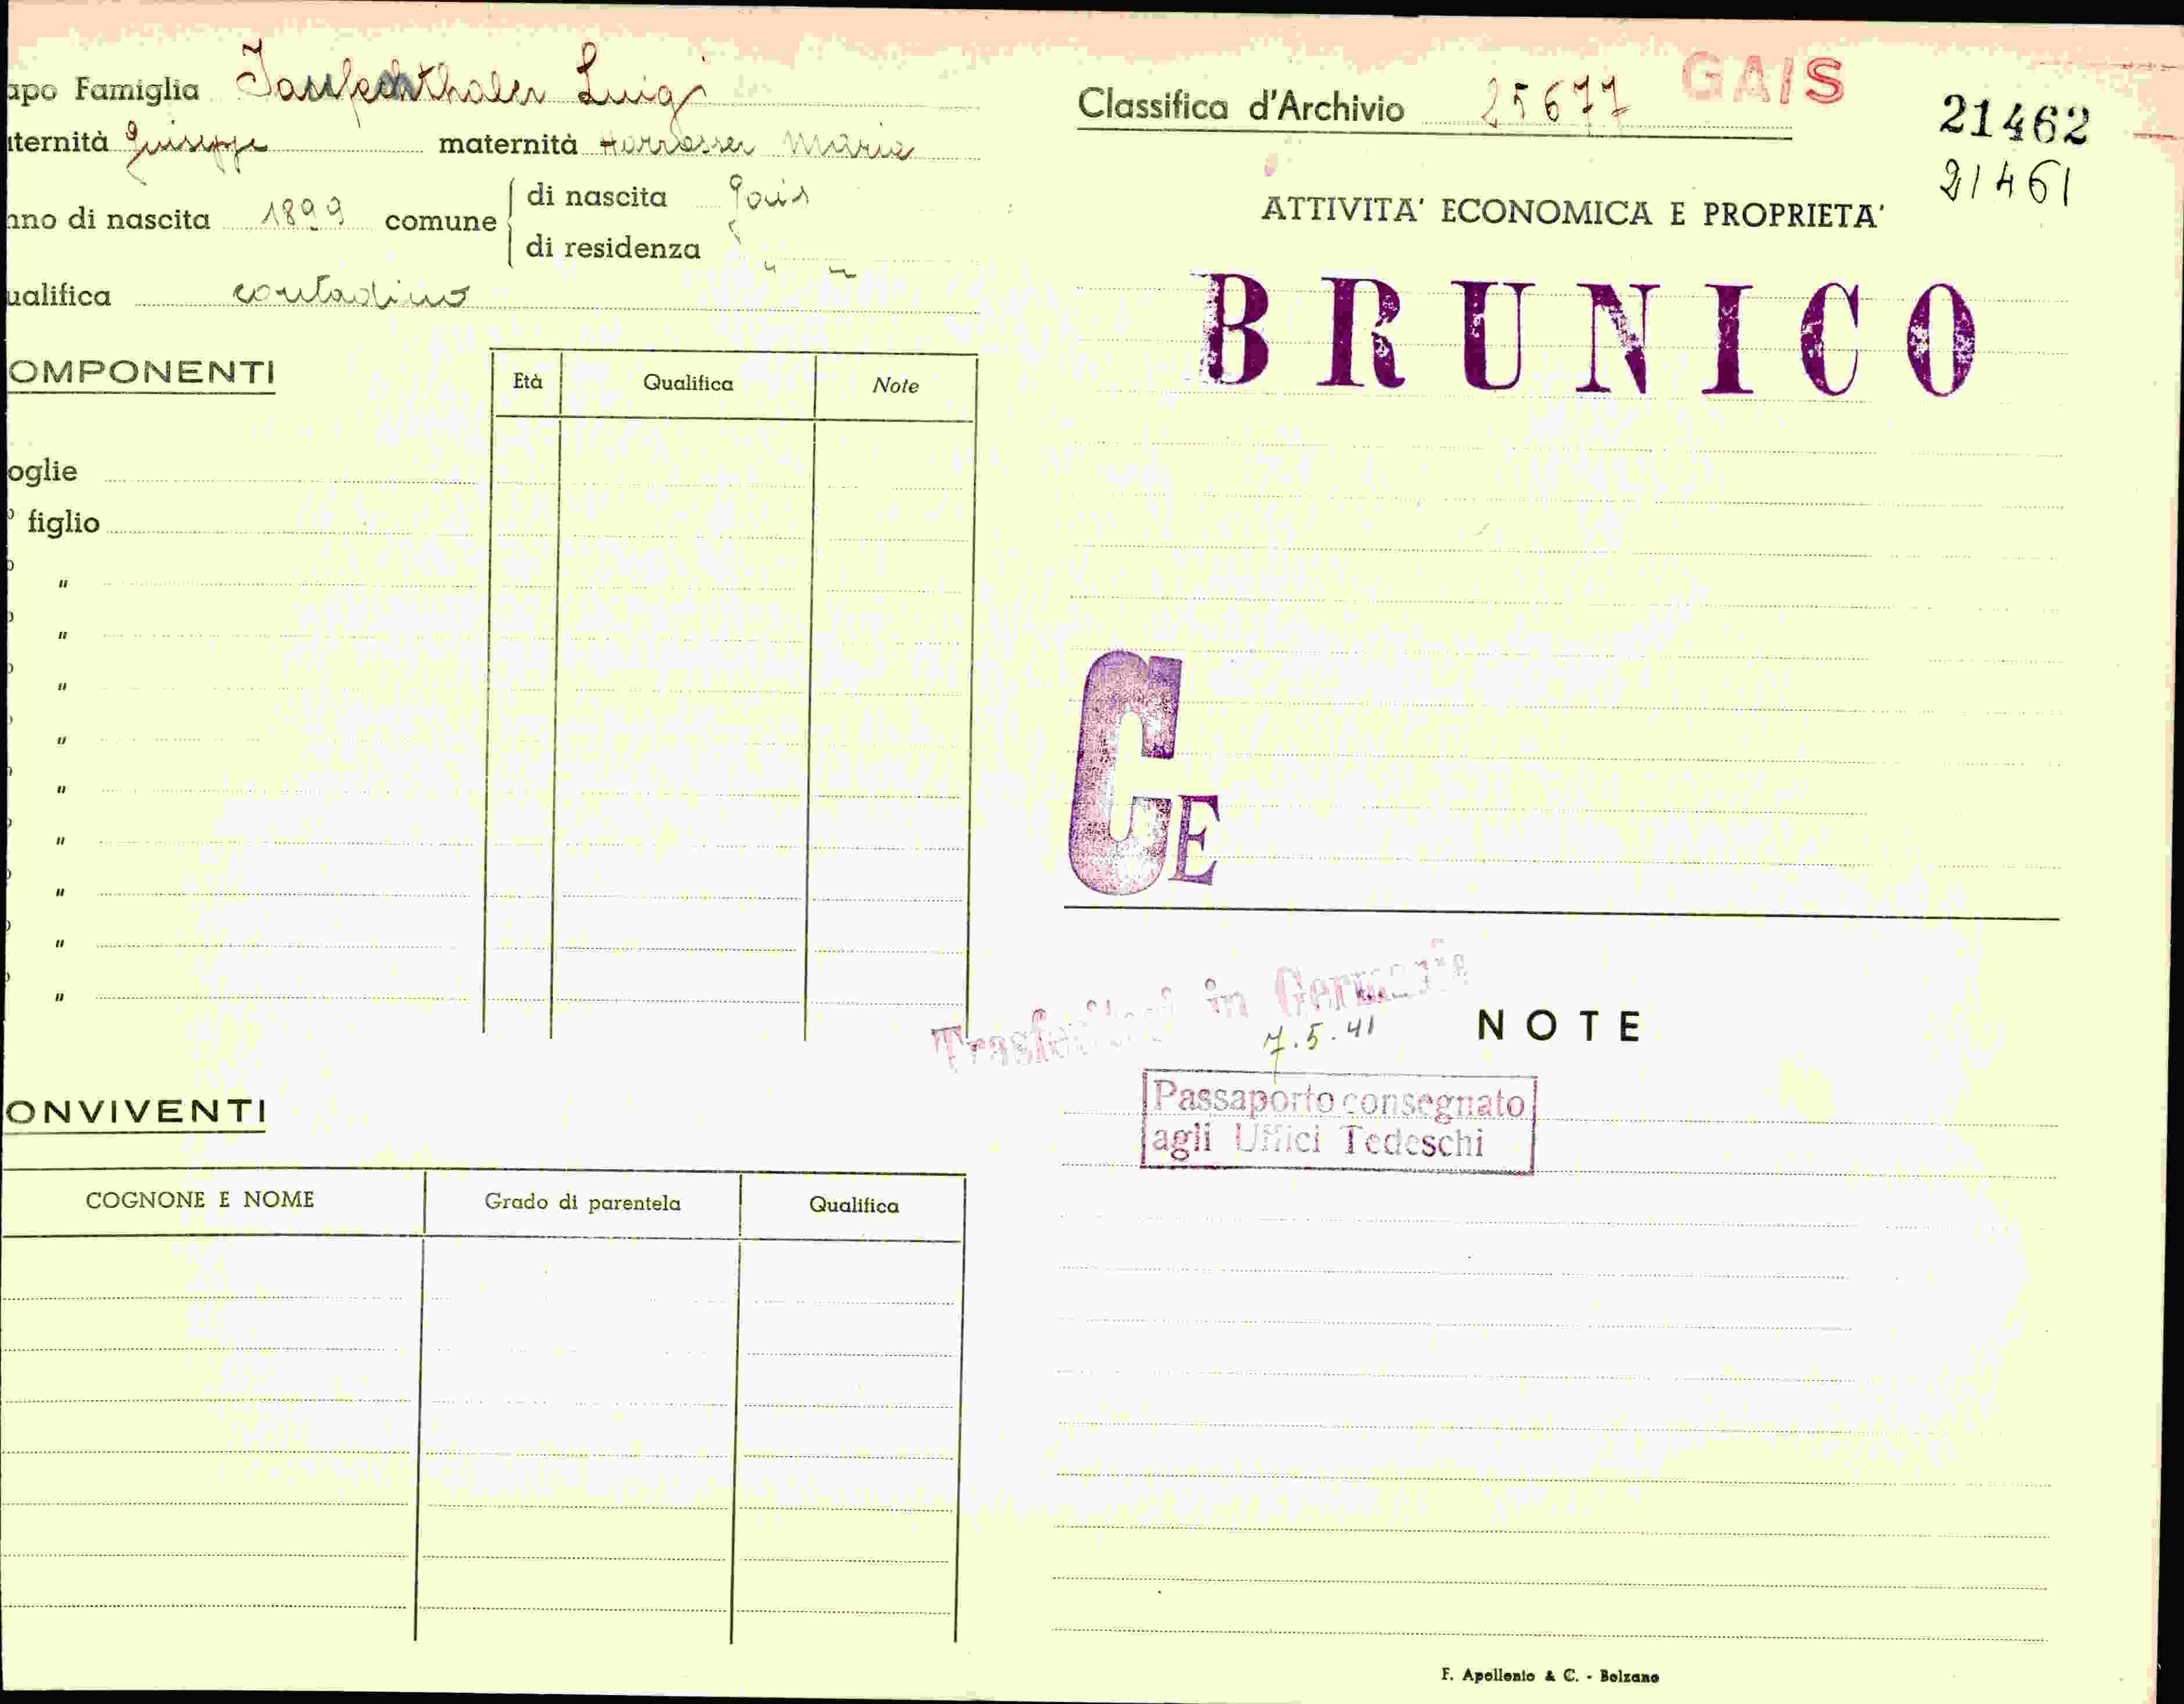 apo Famiglia Luigi
aternità Giuseppe maternità Maria
nno di nascita 1899 comune di nascita Gais
di residenza " "
ualifica contadino
OMPONENTI
Età Qualifica Note
oglie
o figlio
"
"
"
"
"
"
"
"
"
ONVIVENTI
COGNONE E NOME Grado di parentela Qualifica
Classifica d'Archivio 25677 GAIS
21462
21461
ATTIVITA' ECONOMICA E PROPRIETA'
BRUNICO
CE
in Germania
7.5.41
NOTE
Passaporto consegnato
agli Uffici Tedeschi
F. Apollonio & C. - Bolzano